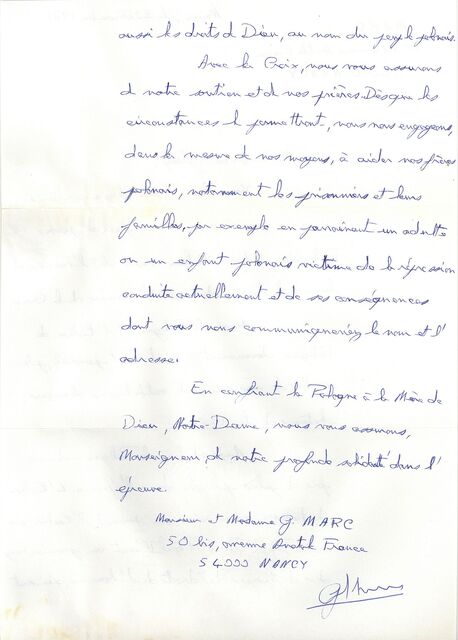 aussi les droits d Dieu, au nom du peuple polonais.
Avec la Croix, nous vous assurons
d notre soutien et d nos prières. Dès que les
circonstances l permettront, nous nous engageons,
dans la mesure de nos moyens, à aider nos frères
polonais, notamment les prisonniers et leurs
familles, par exemple en parrainant un adulte
ou un enfant polonais victime de la répression
conduite actuellement et de ses conséquences
dont vous nous communiqueriez le nom et l'
adresse.
En confiant la Pologne à la Mère de
Dieu, Notre-Dame, nous vous assurons,
Monseigneur, de notre profonde solidarité dans l'
épreuve.
Monsieur et Madame G. MARC
50 bis, avenue Anatole France
54000 NANCY